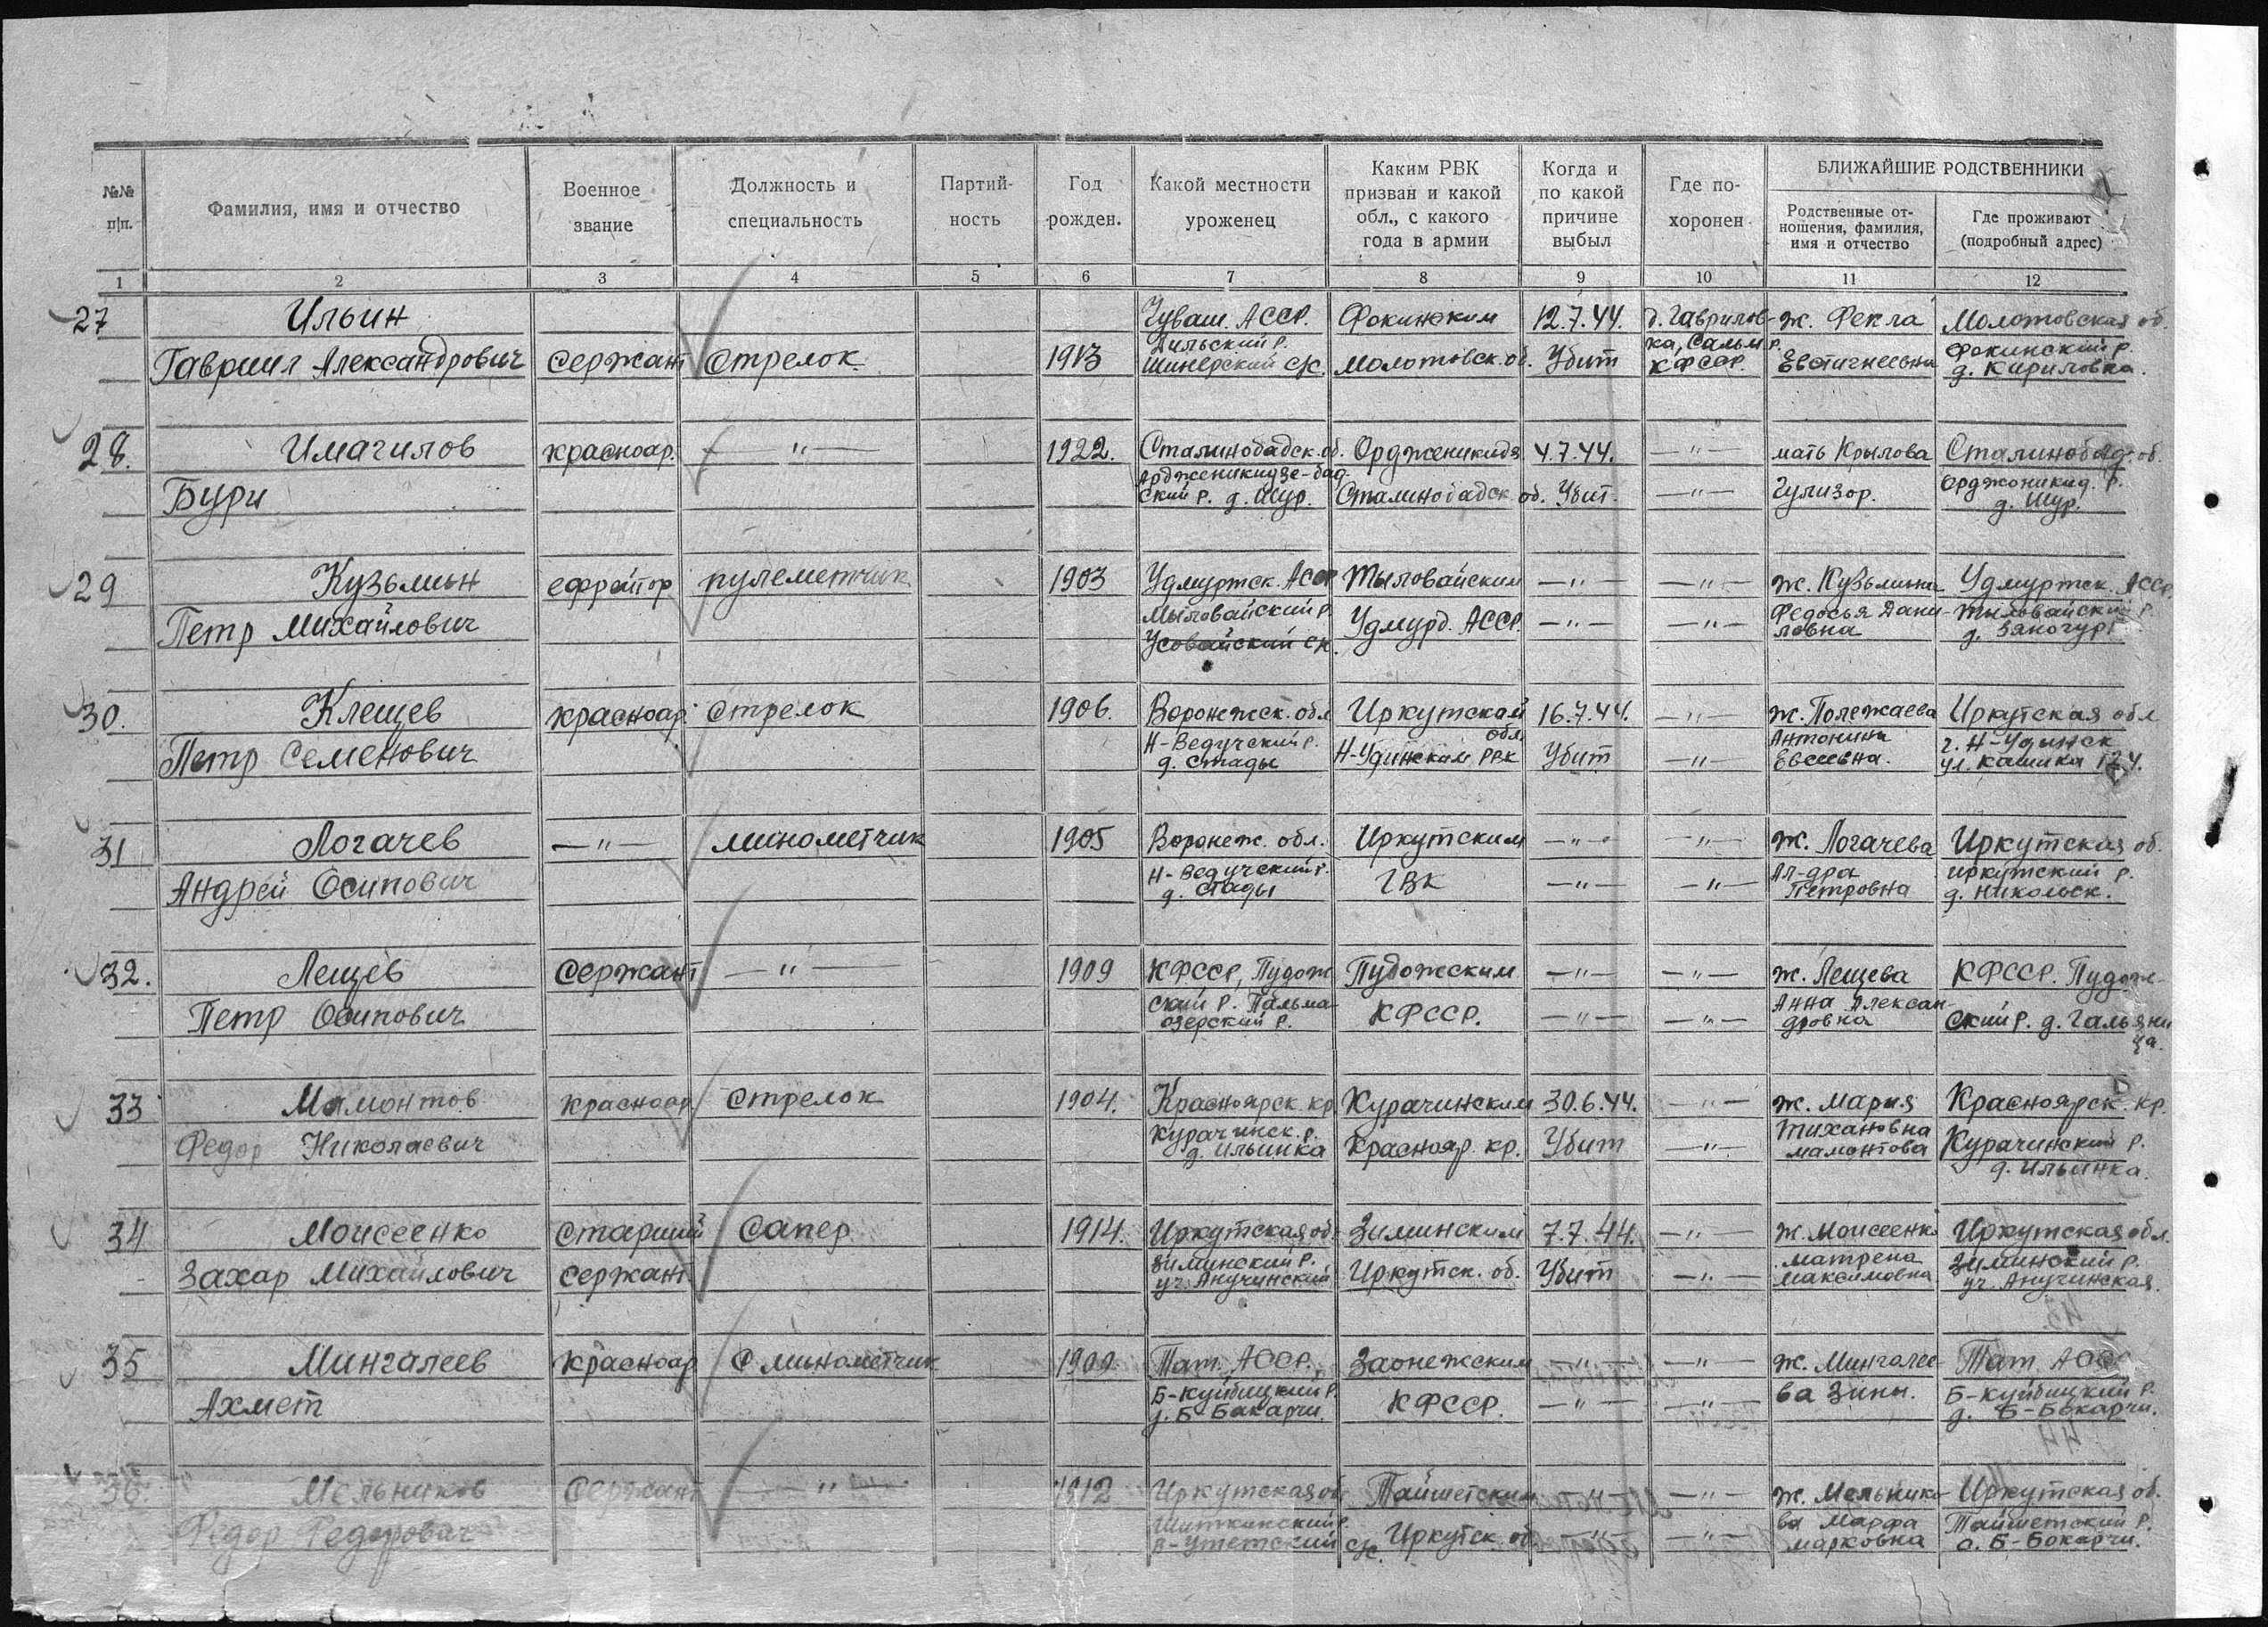 №№ п/п.
Фамилия, имя и отчество
Военное звание
Должность и специальность
Партий-ность
Год рожден.
Какой местности уроженец
Каким РВК призван и какой обл., с какого года в армии
Когда и по какой причине выбыл
Где по-хоронен
БЛИЖАЙШИЕ РОДСТВЕННИКИ
Родственные от-ношения, фамилия, имя и отчество
Где проживают (подробный адрес)
1 2 3 4 5 6 7 8 9 10 11 12
27 Ильин Чуваш. АССР. Фокинским 12.7.44. д. Гаврилов- ж. Фекла Молотовская об.
Гавриил Александрович Сержант Стрелок 1913 Шинерский с/с. Молотовск. об. Убит ка, Сальм. р. КФССР. Евстигнеевна Фокинский р. д. Кириловка.
28. Имагилов красноар. —"— 1922. Сталинобадск. об. Ордженикидз 4.7.44. —"— мать Крылова Сталинобад. об.
Бури Ордженикидзе-бад-ский р. д. Шур. Сталинобадск об. Убит. —"— Гулизор. Орджоникид. р. д. Шур.
29 Кузьмин ефрейтор пулеметчик 1903 Удмуртск. АССР Тыловайским —"— —"— ж. Кузьмина Удмуртск. АССР.
Петр Михайлович Мыловайский р. Усовайский с/с. Удмурд. АССР. —"— —"— Федосья Дани-ловна Тыловайский р. д. Зяногурт
30. Клещев красноар. Стрелок 1906. Воронежск. обл Иркутской обл. 16.7.44. —"— ж. Полежаева Иркутская обл
Петр Семенович Н-Ведучский р. д. Стады Н-Удинским РВК Убит —"— Антонина Евсеевна. г. Н-Удинск ул. Кашика 124.
31 Логачев —"— минометчик 1905 Воронеж. обл. Иркутским —"— —"— ж. Логачева Иркутская об.
Андрей Осипович Н-Ведучский р. д. Стады ГВК —"— —"— Ал-дра Петровна Иркутский р. д. Никольск.
32. Лещев Сержант —"— 1909 КФССР, Пудож Пудожским —"— —"— ж. Лещева КФССР. Пудож-
Петр Осипович ский р. Пальма-озерский р. КФССР. —"— —"— Анна Алексан-дровна ский р. д. Гальяни ца.
33 Мамонтов красноар Стрелок 1904. Красноярск. кр Курагинским 30.6.44. —"— ж. Мария Красноярск. кр.
Федор Николаевич Курагинск. р. д. Ильинка Краснояр. кр. Убит —"— Тихановна Мамонтова Курагинский р. д. Ильинка.
34 Моисеенко Старший Сапер 1914. Иркутская об. Зиминским 7.7.44. —"— ж. Моисеенко Иркутская обл.
Захар Михайлович сержант. Зиминский р. уч. Анучинский Иркутск. об. Убит —"— Матрена Максимовна Зиминский р. уч. Анучинская.
35 Мингалеев красноар минометчик 1909. Тат. АССР. Заонежским —"— —"— ж. Мингалее- Тат. АСС
Ахмет Б-Куйбицкий р. д. Б-Бакарчи. КФССР. —"— —"— ва Зины. Б-Куйбицкий р. д. Б-Бокарчи.
36. Мельников Сержант —"— 1912 Иркутская об Тайшетским —"— —"— ж. Мельнико- Иркутская об.
Федор Федорович Шиткинский р. с/с. Иркутск. об —"— —"— ва Марфа Марковна Тайшетский р. с. Б-Бокарчи.